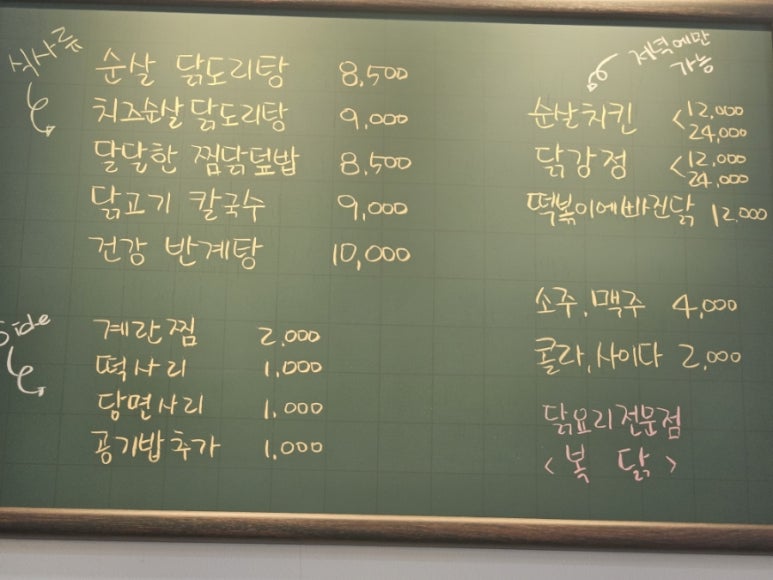 식사류
순살 닭도리탕 8,500
치즈순살닭도리탕 9,000
달달한 찜닭덮밥 8,500
닭고기 칼국수 9,000
건강 반계탕 10,000
Side
계란찜 2,000
떡사리 1,000
당면사리 1,000
공기밥추가 1,000
저녁에만
가능
순살치킨 < 12,000
24,000
닭강정 < 12,000
24,000
떡볶이에빠진닭 12,000
소주, 맥주 4,000
콜라, 사이다 2,000
닭요리전문점
<복 닭>